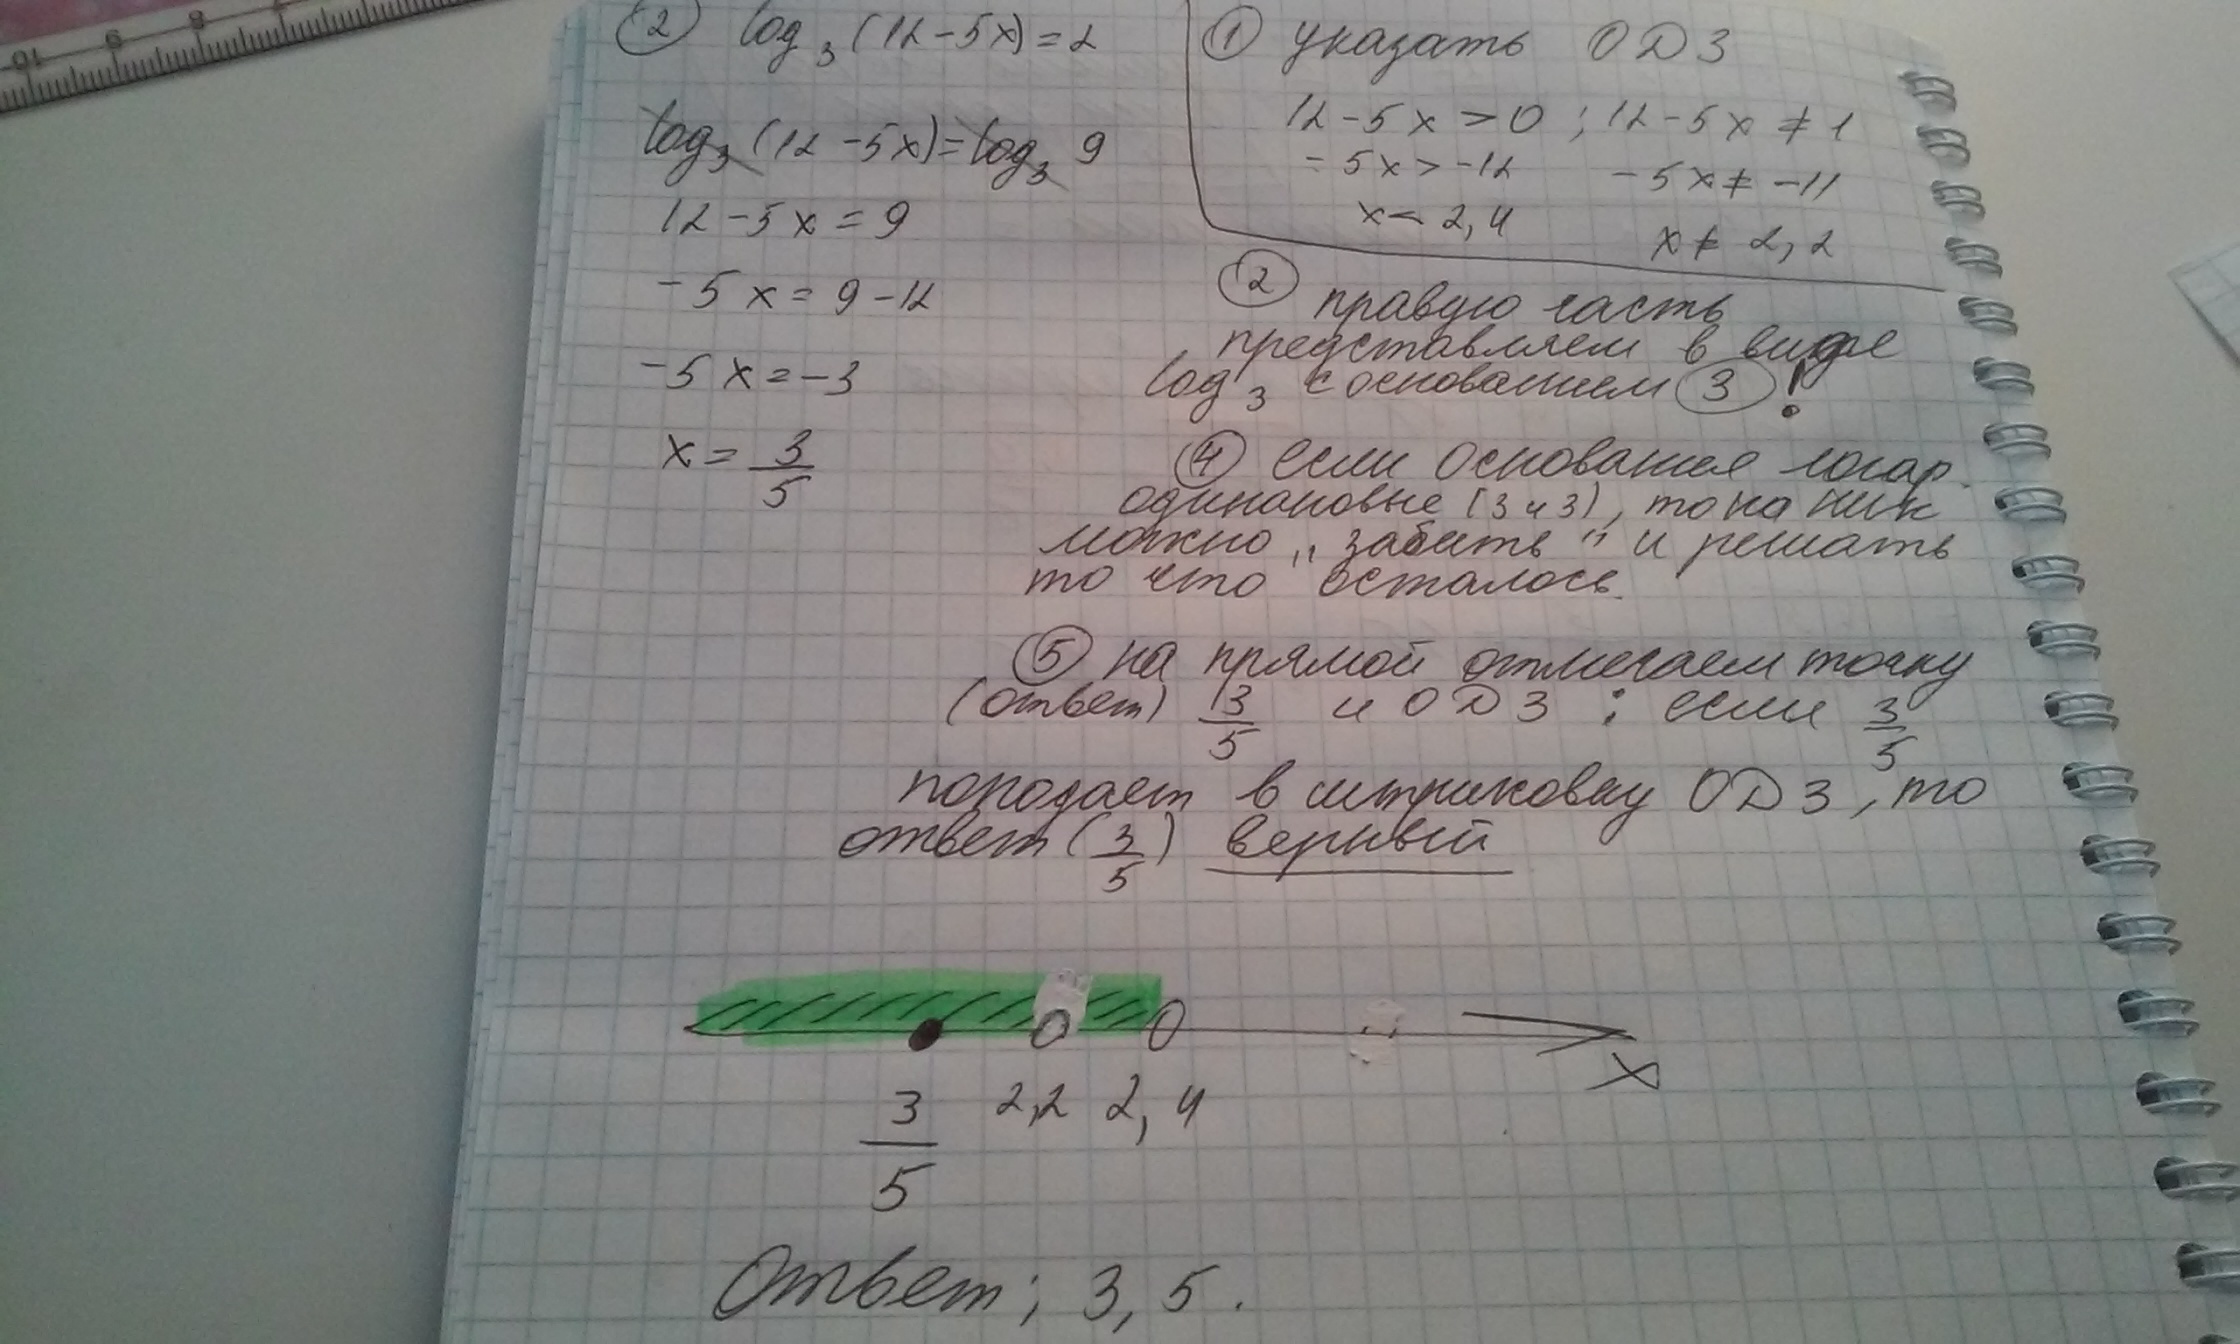 ② log₃(12-5x)=2
log₃(12-5x)=log₃ 9
12-5x=9
-5x=9-12
-5x=-3
x=3/5
① указать ОДЗ
12-5x>0 ; 12-5x≠1
-5x>-12 -5x≠-11
x<2,4 x≠2,2
② правую часть
представляем в виде
log₃ с основанием ③!
④ если основания логар.
одинаковые (3 и 3), то на них
можно „забить“ и решать
то что осталось.
⑤ на прямой отмечаем точку
(ответ) 3/5 и ОДЗ : если 3/5
попадает в штриховку ОДЗ, то
ответ (3/5) верный
3/5 2,2 2,4 x
Ответ; 3,5.
10 9 8 7